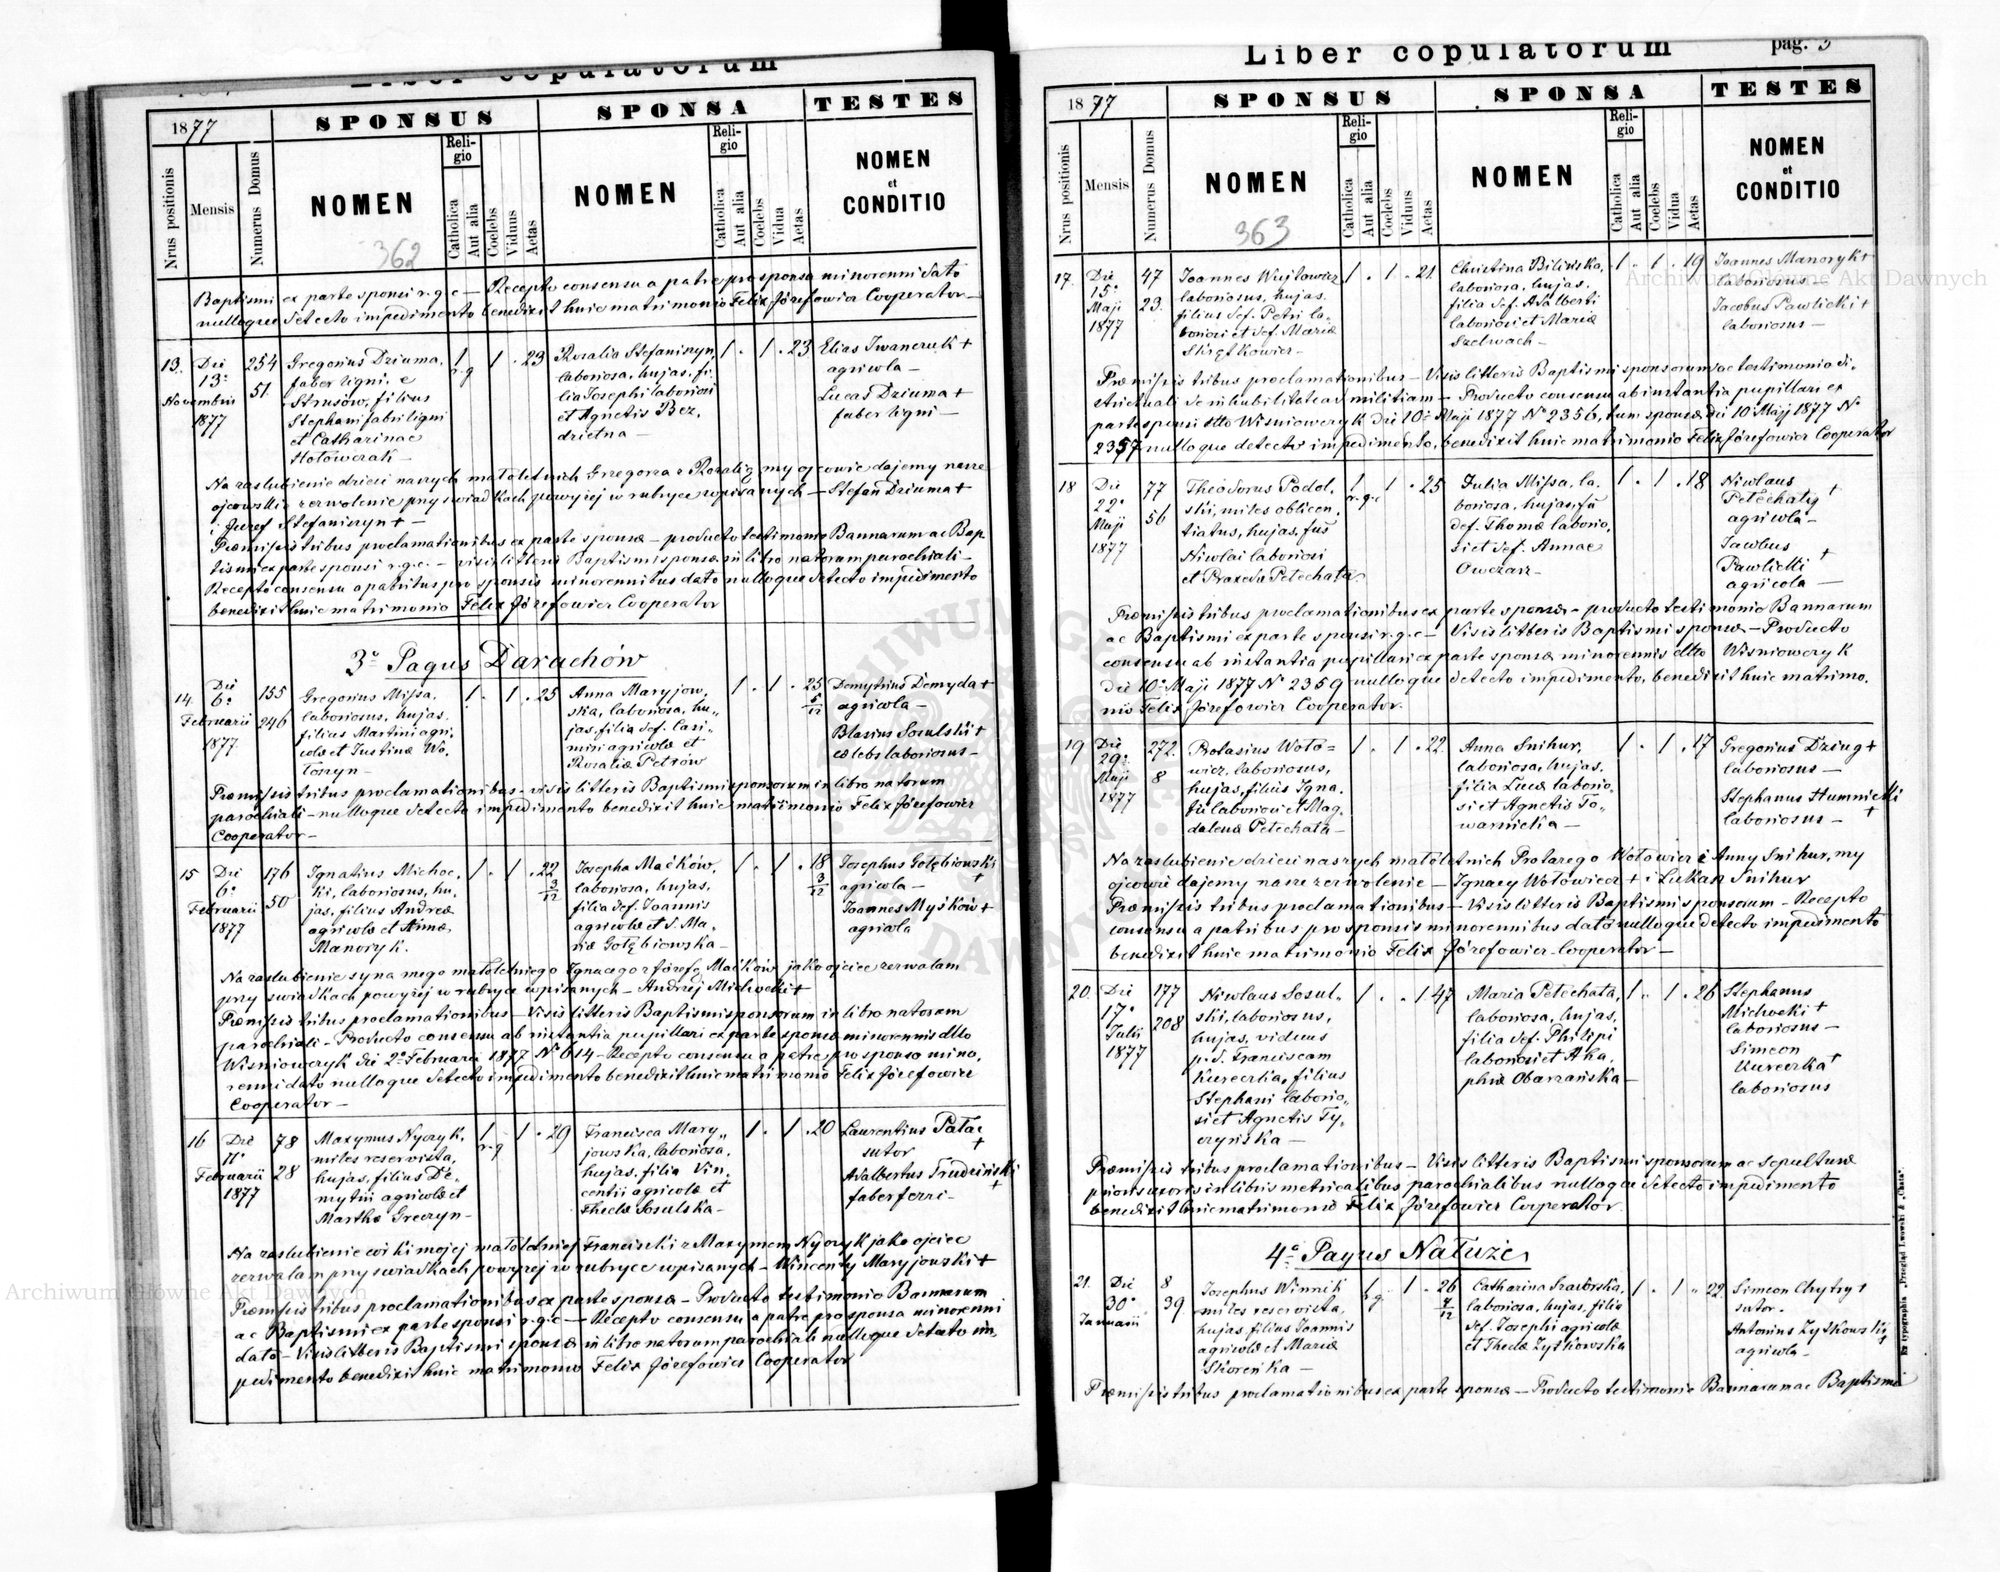 Liber copulatorum
1877
SPONSUS
SPONSA
TESTES
Nrus positionis
Mensis
Numerus Domus
NOMEN
Religio
Catholica
Aut alia
Coelebs
Viduus
Aetas
NOMEN
Religio
Catholica
Aut alia
Coelebs
Vidua
Aetas
NOMEN
et
CONDITIO
362
Baptismi ex parte sponsi r.g.c — Recepto consensu a patre pro sponsa minorenni dato
nulloque detecto impedimento benedixit huic matrimonio Felix Józefowicz Cooperator —
13. Die 13ª Novembris 1877
254
51.
Gregorius Dziuma,
faber ligni, e
Strusów, filius
Stephani fabri ligni
et Catharinae
Hołowczak —
1 r.g 1 . 23
Rosalia Stefaniszyn,
laboriosa, hujas, fi-
lia Josephi laboriosi
et Agnetis Bez-
drietna —
1 . 1 . 23
Elias Iwanczuk +
agricola —
Lucas Dziuma +
faber ligni —
Na zaslubienie dzieci naszych małoletnich Grzegorza z Rozalią my ojcowie dajemy nasze
ojcowskie zezwolenie przy swiadkach powyżej w rubryce wpisanych — Stefan Dziuma +
i Józef Stefaniszyn + —
Praemissis tribus proclamationibus ex parte sponsae — producto testimonio Bannorum ac Bap
tismi ex parte sponsi r.g.c. — visis litteris Baptismi sponsae in libro natorum parochiali —
Recepto consensu a patribus pro sponsis minorennibus dato nulloque detecto impedimento
benedixit huic matrimonio Felix Józefowicz Cooperator
3º Pagus Darachów
14. Die 6ª Februarii 1877
155
246
Gregorius Missa,
laboriosus, hujas,
filius Martini agri-
colae et Justinae Wo-
łoszyn —
1 . 1 . 25
Anna Maryjow-
ska, laboriosa, hu-
jas, filia def. Casi-
miri agricolae et
Rosaliae Petrów
1 . 1 . 25 5/12
Demytrius Demyda +
agricola —
Blasius Sosulski +
coelebs laboriosus —
Praemissis tribus proclamationibus — visis litteris Baptismi sponsorum in libro natorum
parochiali — nulloque detecto impedimento benedixit huic matrimonio Felix Józefowicz
Cooperator —
15 Die 6ª Februarii 1877
176
50
Ignatius Michoc-
ki, laboriosus, hu-
jas, filius Andreae
agricolae et Annae
Manoryk.
1 . 1 . 22 3/12
Josepha Maćków,
laboriosa, hujas,
filia def. Joannis
agricolae et d. Ma-
riae Gołębiowska —
1 . 1 . 18 3/12
Josephus Gołębiowski +
agricola —
Joannes Myśków +
agricola
Na zaslubienie syna mego małoletniego Ignacego z Józefą Maćków jako ojciec zezwalam
przy swiadkach powyżej w rubryce wpisanych — Andrzej Michocki +
Praemissis tribus proclamationibus — Visis litteris Baptismi sponsorum in libro natorum
parochiali — Producto consensu ab instantia pupillari ex parte sponsae minorennis dtto
Wisniowczyk die 2ª Februarii 1877 Nº 614 — Recepto consensu a patre pro sponso mino-
renni dato nulloque detecto impedimento benedixit huic matrimonio Felix Józefowicz
Cooperator —
16 Die 11ª Februarii 1877
78
28
Maxymus Nyczyk,
miles reservista,
hujas, filius De-
mytrii agricolae et
Marthae Greczyn —
1 r.g 1 . 29
Francisca Mary-
jowska, laboriosa,
hujas, filia Vin-
centii agricolae et
Theclae Sosulska —
1 . 1 . 20
Laurentius Pałac +
sutor
Adalbertus Trudziński +
faber ferri —
Na zaslubienie córki mojej małoletniej Franciszki z Maxymem Nyczyk jako ojciec
zezwalam przy swiadkach powyżej w rubryce wpisanych — Wincenty Maryjowski +
Praemissis tribus proclamationibus ex parte sponsae — Producto testimonio Bannorum
ac Baptismi ex parte sponsi r.g.c — Recepto consensu a patre pro sponsa minorenni
dato — Visis litteris Baptismi sponsae in libro natorum parochiali nulloque detecto im-
pedimento benedixit huic matrimonio Felix Józefowicz Cooperator
Liber copulatorum
pag. 3
1877
SPONSUS
SPONSA
TESTES
Nrus positionis
Mensis
Numerus Domus
NOMEN
Religio
Catholica
Aut alia
Coelebs
Viduus
Aetas
NOMEN
Religio
Catholica
Aut alia
Coelebs
Vidua
Aetas
NOMEN
et
CONDITIO
363
17. Die 15ª Maji 1877
47
23.
Joannes Wuitowicz
laboriosus, hujas,
filius def. Petri la-
boriosi et def. Mariae
Skrętkowicz —
1 . 1 . 21
Christina Bilińska,
laboriosa, hujas,
filia def. Adalberti
laboriosi et Mariae
Szelwach —
1 . 1 . 19
Joannes Manoryk +
laboriosus —
Jacobus Pawlicki +
laboriosus —
Praemissis tribus proclamationibus — Visis litteris Baptismi sponsorum ac testimonio di-
strictuali de inhabilitate ad militiam — Producto consensu ab instantia pupillari ex
parte sponsi dtto Wisniowczyk die 10ª Maji 1877 Nº 2356, tum sponsae die 10 Maji 1877 Nº
2357 nulloque detecto impedimento, benedixit huic matrimonio Felix Józefowicz Cooperator
18 Die 22ª Maji 1877
77
56
Theodorus Podol-
ski, miles oblicen-
tiatus, hujas, fus
Nicolai laboriosi
et Praxeda Petechata
1 r.g.c 1 . 25
Julia Missa, la-
boriosa, hujas, fa
def. Thomae laborio-
si et def. Annae
Owczar —
1 . 1 . 18
Nicolaus
Petechaty +
agricola —
Jacobus
Pawlicki +
agricola —
Praemissis tribus proclamationibus ex parte sponsae — producto testimonio Bannorum
ac Baptismi ex parte sponsi r.g.c — Visis litteris Baptismi sponsae — Producto
consensu ab instantia pupillari ex parte sponsae minorennis dtto Wisniowczyk
die 10ª Maji 1877 Nº 2359 nulloque detecto impedimento, benedixit huic matrimo-
nio Felix Józefowicz Cooperator.
19 Die 29ª Maji 1877
272.
8
Protasius Woto-
wicz, laboriosus,
hujas, filius Igna-
tii laboriosi et Mag-
dalenae Petechata —
1 . 1 . 22.
Anna Snihur,
laboriosa, hujas,
filia Lucae laborio-
si et Agnetis To-
warnicka —
1 . 1 . 17
Gregorius Dziug +
laboriosus —
Stephanus Humnicki +
laboriosus —
Na zaslubienie dzieci naszych małoletnich Protazego Wotowicz i Anny Snihur, my
ojcowie dajemy nasze zezwolenie — Ignacy Wotowicz + i Łukasz Snihur
Praemissis tribus proclamationibus — Visis litteris Baptismi sponsorum — Recepto
consensu a patribus pro sponsis minorennibus dato nulloque detecto impedimento
benedixit huic matrimonio Felix Józefowicz Cooperator —
20. Die 17ª Julii 1877
177
208
Nicolaus Sosul-
ski, laboriosus,
hujas, viduus
p. d. Franciscam
Kureczka, filius
Stephani laborio-
si et Agnetis Ty-
czyńska —
1 . . 1 47
Maria Petechata,
laboriosa, hujas,
filia def. Philipi
laboriosi et Aka-
phiae Obarzańska —
1 . 1 . 26
Stephanus
Michocki +
laboriosus —
Simeon
Kureczka +
laboriosus
Praemissis tribus proclamationibus — Visis litteris Baptismi sponsorum ac sepulturae
prioris uxoris in libris metricalibus parochialibus nulloque detecto impedimento
benedixit huic matrimonio Felix Józefowicz Cooperator.
4º Pagus Nałuże
21. Die 30ª Januarii
8
39
Josephus Winnik
miles reservista,
hujas filius Joannis
agricolae et Mariae
Skoreńka —
1 r.g. 1 . 26 7/12
Catharina Szaworska,
laboriosa, hujas, filia
def. Josephi agricolae
et Theclae Zyśkowska
1 . 1 . 22
Simeon Chytry +
sutor.
Antonius Zyśkowski +
agricola —
Praemissis tribus proclamationibus ex parte sponsae — Producto testimonio Bannorum ac Baptismi
Ex typographia „Przegląd Lwowski & „Chata".
Archiwum Główne Akt Dawnych
Archiwum Główne Akt Dawnych